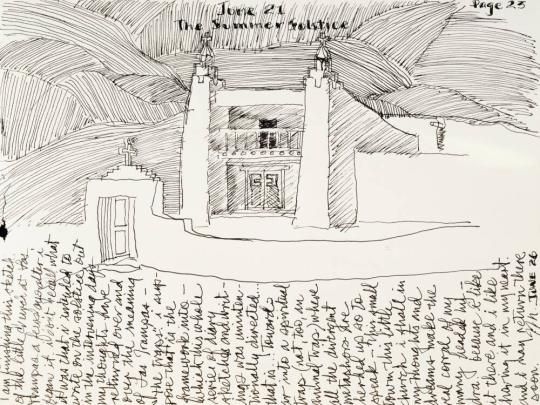 June 21
The Summer Solstice
Page 23
I am finishing this sketch
of the little chapel at Las
Trampas a few days after I
began it. Don't recall what
it was that I intended to
write on the solstice but
in the intervening days
my thoughts have
returned over and
over to the meaning
of Las Trampas -
"the traps". I sup-
pose that is the
framework into
which this whole
series of diary
sketches and writ-
ings was uninten-
tionally directed...
that is: toward
or into a spiritual
trap (not as in
animal trap) where
all the divergent
metaphors are
herded up so to
speak - This small
town, this little
church I shall in
my thoughts and
dreams make the
real corral of my
many headed hy-
dra because I like
it there and I like
having it in my heart
and I may return there
soon. JUNE 26